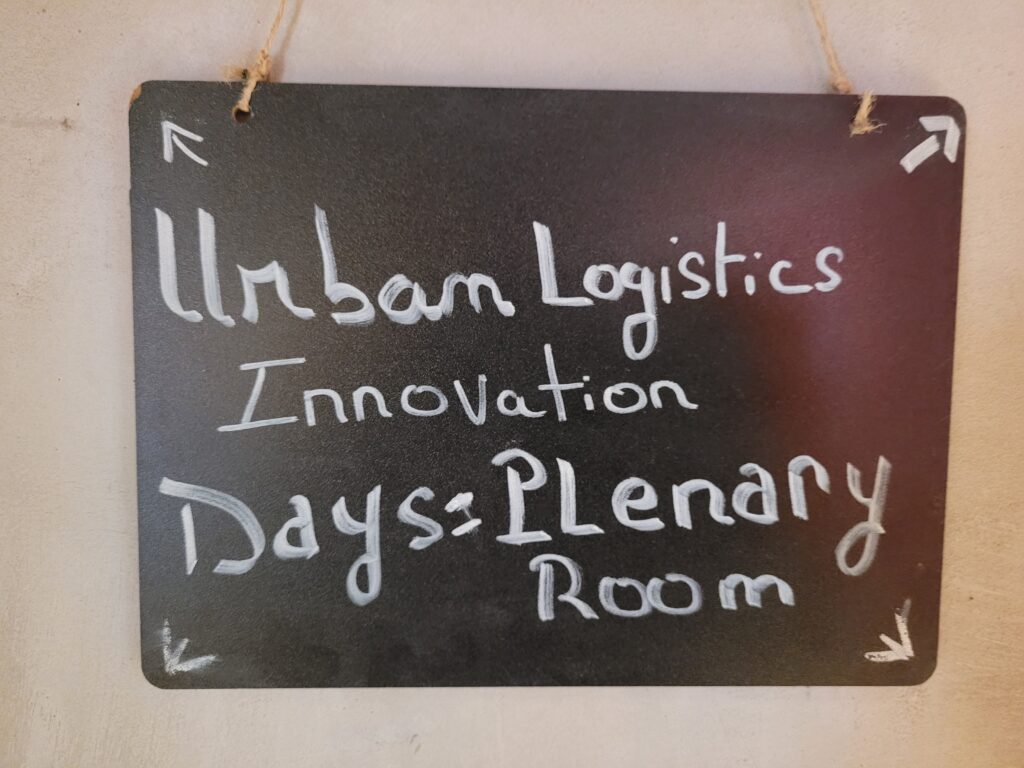 Urban Logistics
Innovation
Days: Plenary
Room